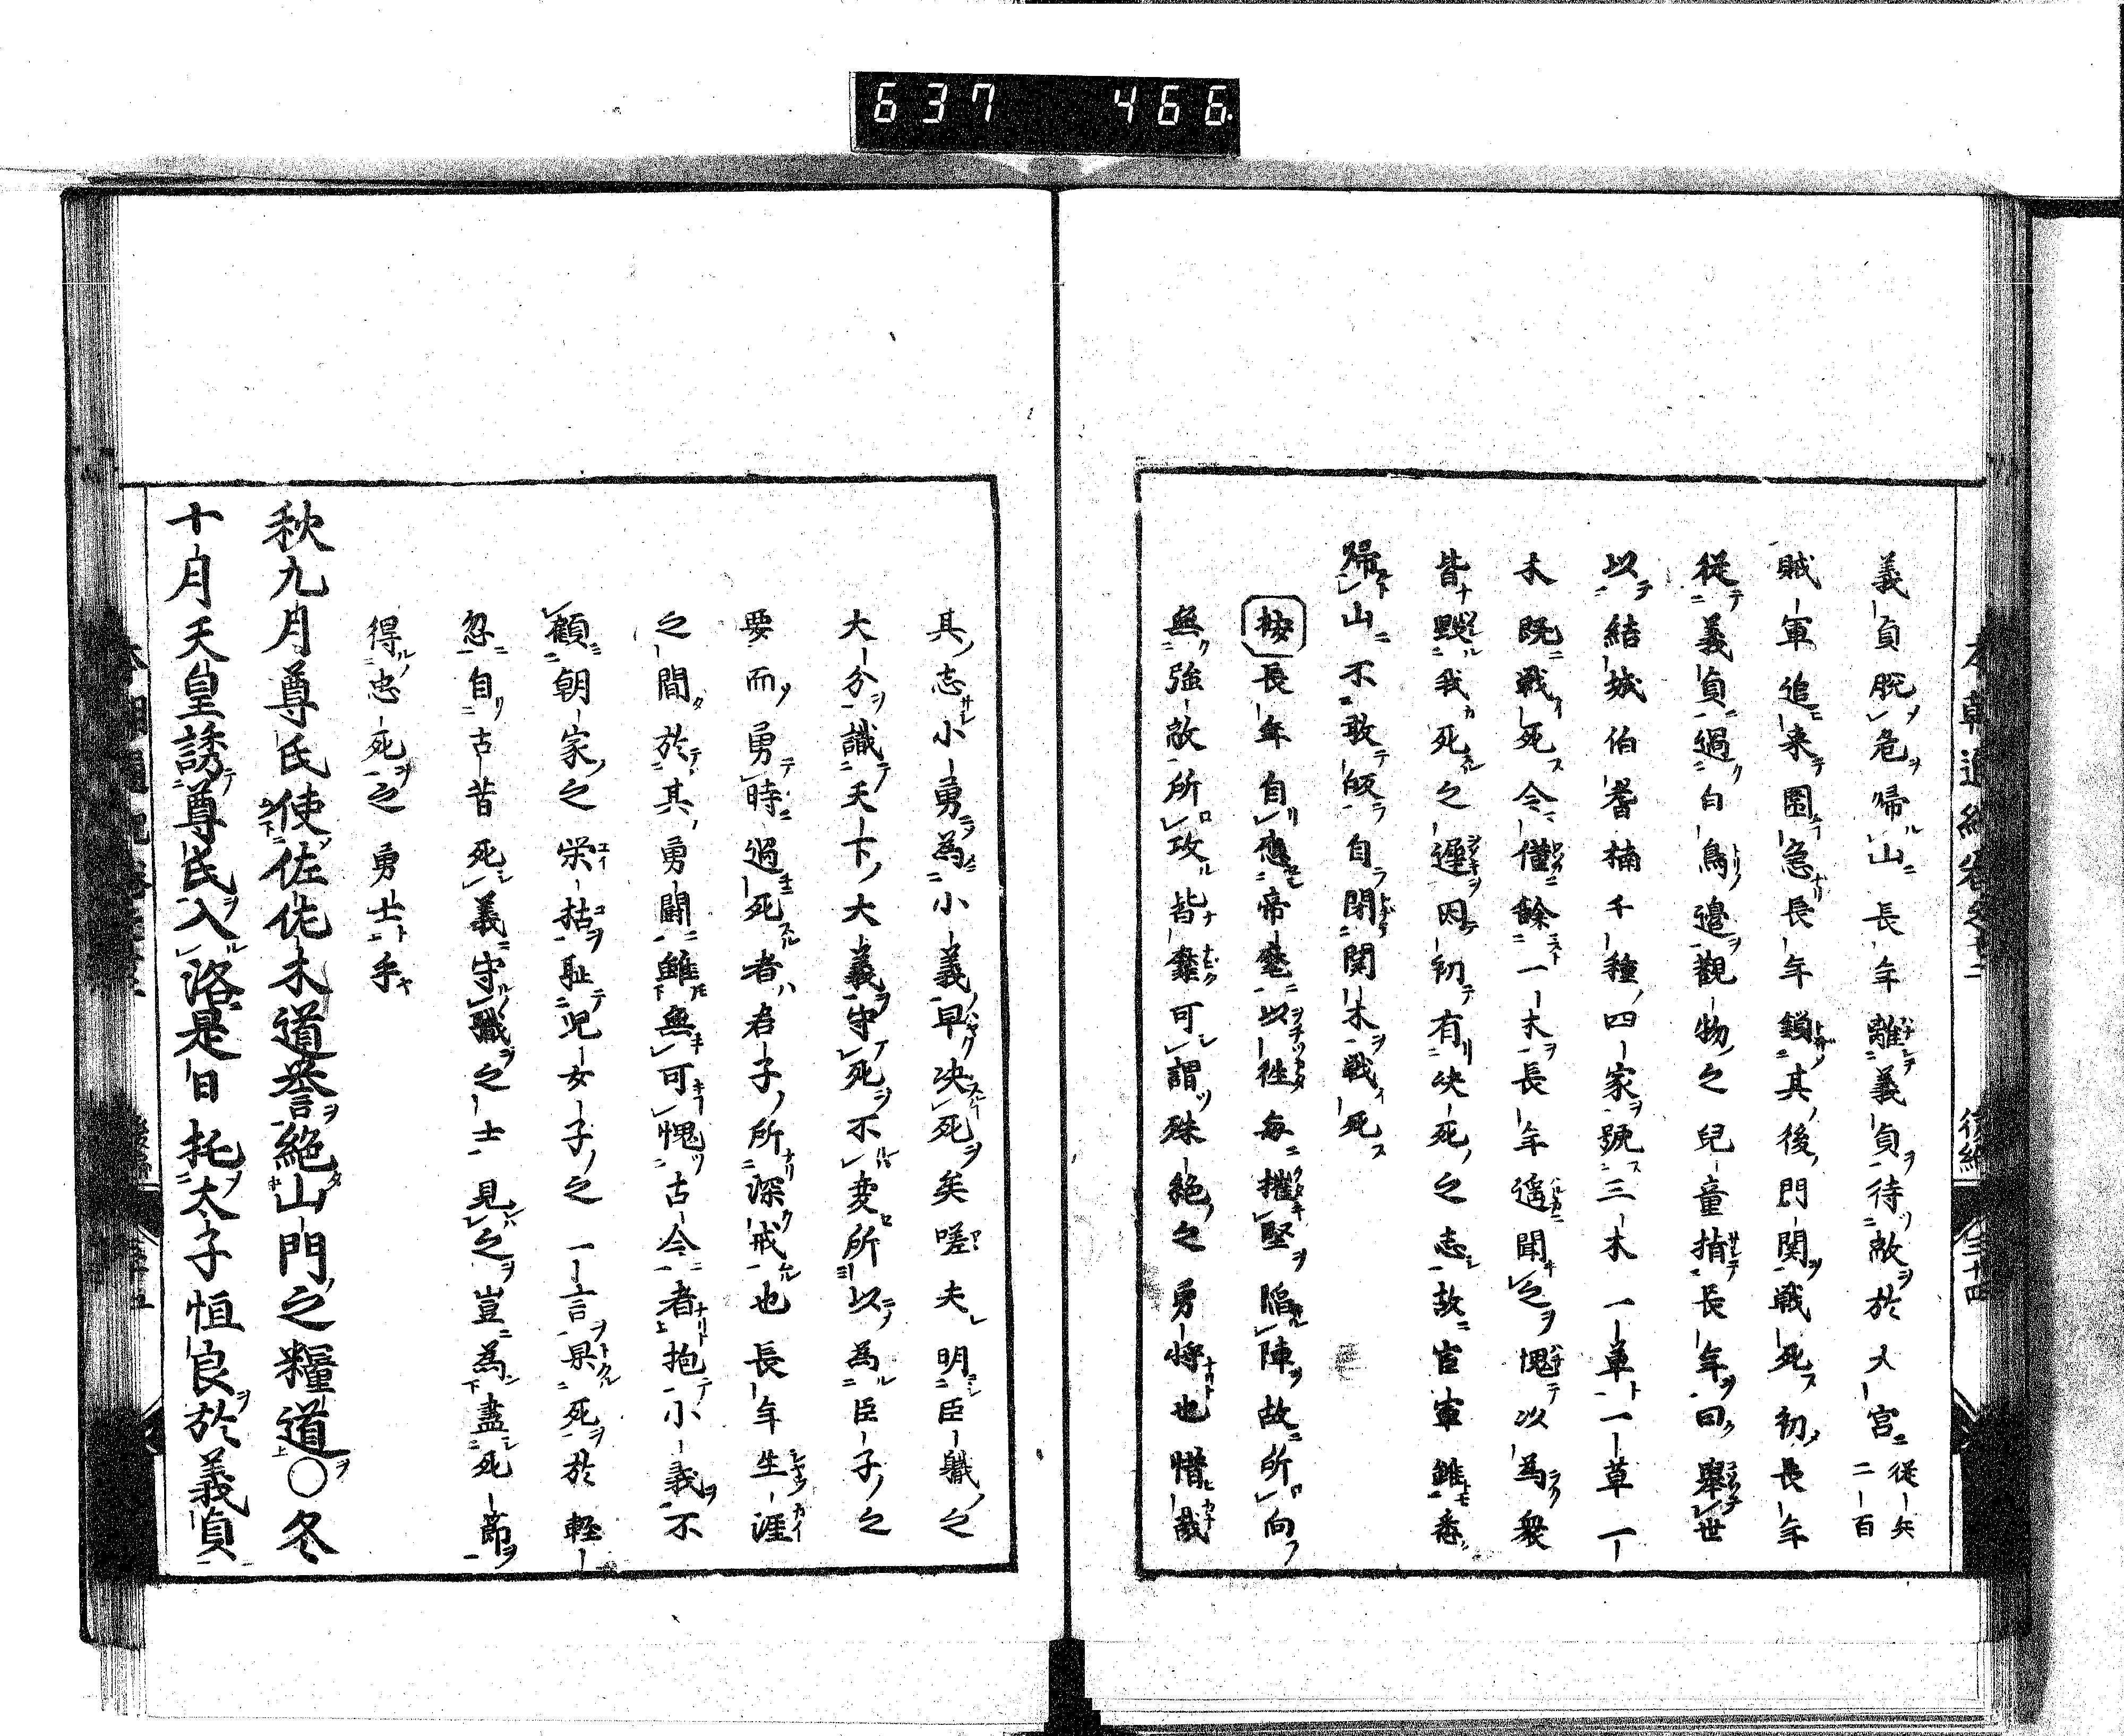 637 466
義貞脱危帰山長年離義貞待敵於大宮従兵二百
賊軍追来圍急長年鎖其後門関戦死初長年
従義貞過白鳥邉観物之兒童指長年曰舉世
以結城伯耆楠千種四家號三木一草一草一
木既戦死今僅餘一木長年遥聞之愧以為衆
皆黙我死之遲因初有决死之志故官軍雖悉
歸山不敢皈自閉関木戦死
按長年自應帝麾以往每摧堅陷陣故所向
無強敵所攻皆靡可謂殊絶之勇将也惜哉
其志小勇為小義早决死矣嗟夫明臣職之
大分識天下大義守死不変所以為臣子之
要而勇時過死者君子所深戒也長年生涯
之間於其勇闘雖無可愧古今者抱小義不
顧朝家之栄枯耻児女子之一言果死於輕
忽自古昔死義守職之士見之豈為盡死節
得忠死之勇士乎
秋九月尊氏使佐佐木道誉絶山門之糧道〇冬
十月天皇誘尊氏入洛是日托太子恒良於義貞